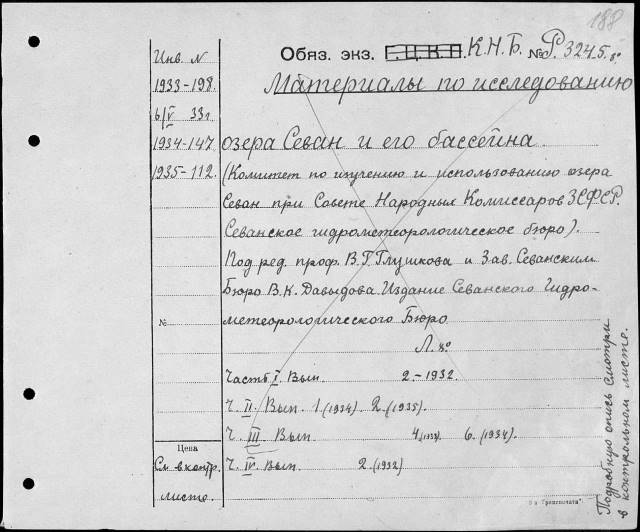 188
Обяз. экз. Г.Ц.К.П. К.Н.Б. № Р.3245.8°
Материалы по исследованию
озера Севан и его бассейна
(Комитет по изучению и использованию озера
Севан при Совете Народных Комиссаров ЗСФСР.
Севанское гидрометеорологическое бюро).
Под ред. проф. В.Г. Глушкова и Зав. Севанским
Бюро В.К. Давыдова. Издание Севанского Гидро-
метеорологического Бюро
Л. 8°
Часть I. Вып. 2.-1932.
Ч. II. Вып. 1.(1934). 2.(1935).
Ч. III Вып 4.(1933). 6.(1934).
Ч. IV. Вып. 2.(1932)
Инв. N
1933-198.
6/V 33г.
1934-147.
1935-112.
№
Цена
См. в контр.
листе.
Подробную опись смотри
в контрольном листе.